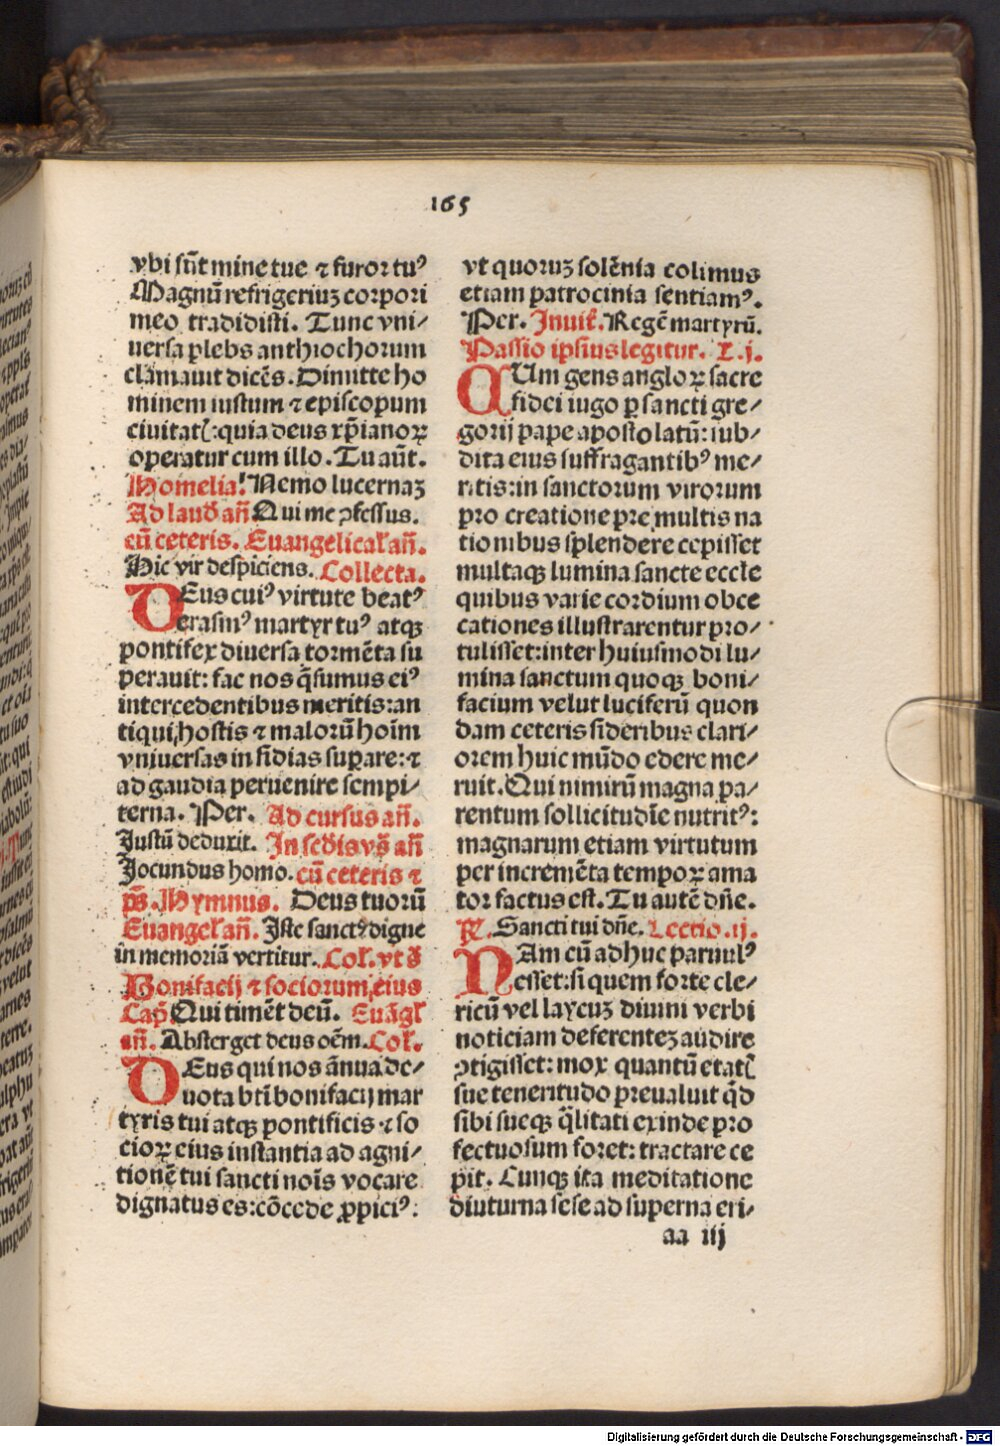 165
vbi sūt mine tue ⁊ furor tuꝰ
Magnū refrigeriuꝫ corpori
meo tradidisti. Tunc vni⸗
uersa plebs anthiochorum
clamauit dicēs. Dimitte ho
minem iustum ⁊ episcopum
ciuitatꝭ: quia deus xp̄ianoꝝ
operatur cum illo. Tu aūt.
Homelia! Nemo lucernaꝫ
Ad laud̄ an̄ Qui me ꝯfessus.
cū ceteris. Euangelical̄ an̄.
Hic vir despiciens. Collecta.
DEus cuiꝰ virtute beatꝰ
erasmꝰ martyr tuꝰ atqꝫ
pontifex diuersa tormēta su
perauit: fac nos q̄sumus eiꝰ
intercedentibus meritis: an
tiqui hostis ⁊ malorū hoīm
vniuersas in sidias suꝑare: ⁊
ad gaudia peruenire sempi⸗
terna. Per. Ad cursus an̄.
Justū deduxit. In scd̄is vs̄ an̄
Jocundus homo. cū ceteris ⁊
ps̄. Hymnus. Deus tuorū
Euangel̄ an̄. Iste sanctꝰ digne
in memoriā vertitur. Col̄. vt s̄
Bonifacij ⁊ sociorum eius
Cap̄ Qui timēt deū. Euāgl̄
an̄. Absterget deus oēm. Col̄.
DEus qui nos ānua de⸗
uota bt̄i bonifacij mar
tyris tui atqꝫ pontificis ⁊ so
cioꝝ eius instantia ad agni⸗
tionē tui sancti noīs vocare
dignatus es: cōcede ꝓpiciꝰ:
vt quoruꝫ solēnia colimus
etiam patrocinia sentiamꝰ.
Per. Inuit̄. Regē martyrū.
Passio ipsius legitur. L. j.
CUm gens angloꝝ sacre
fidei iugo ꝑ sancti gre⸗
gorij pape apostolatū: sub⸗
dita eius suffragantibꝰ me⸗
ritis: in sanctorum virorum
pro creatione pre multis na
tionibus splendere cepisset
multaqꝫ lumina sancte eccl̄e
quibus varie cordium obce
cationes illustrarentur pro⸗
tulisset: inter huiusmodi lu⸗
mina sanctum quoqꝫ boni⸗
facium velut luciferū quon
dam ceteris sideribus clari⸗
orem huic mūdo edere me⸗
ruit. Qui nimirū magna pa⸗
rentum sollicitudīe nutritꝰ:
magnarum etiam virtutum
per incremēta tempoꝝ ama
tor factus est. Tu autē dn̄e.
℟. Sancti tui dn̄e. Lectio. ij.
NAm cū adhuc paruulꝰ
esset: si quem forte cle⸗
ricū vel laycuꝫ diuini verbi
noticiam deferenteꝫ audire
ꝯtigisset: mox quantū etatꝭ
sue teneritudo preualuit q̄d
sibi sueqꝫ q̄litati exinde pro
fectuosum foret: tractare ce
pit. Cunqꝫ ita meditatione
diuturna sese ad superna eri⸗
aa iij
Digitalisierung gefördert durch die Deutsche Forschungsgemeinschaft - DFG